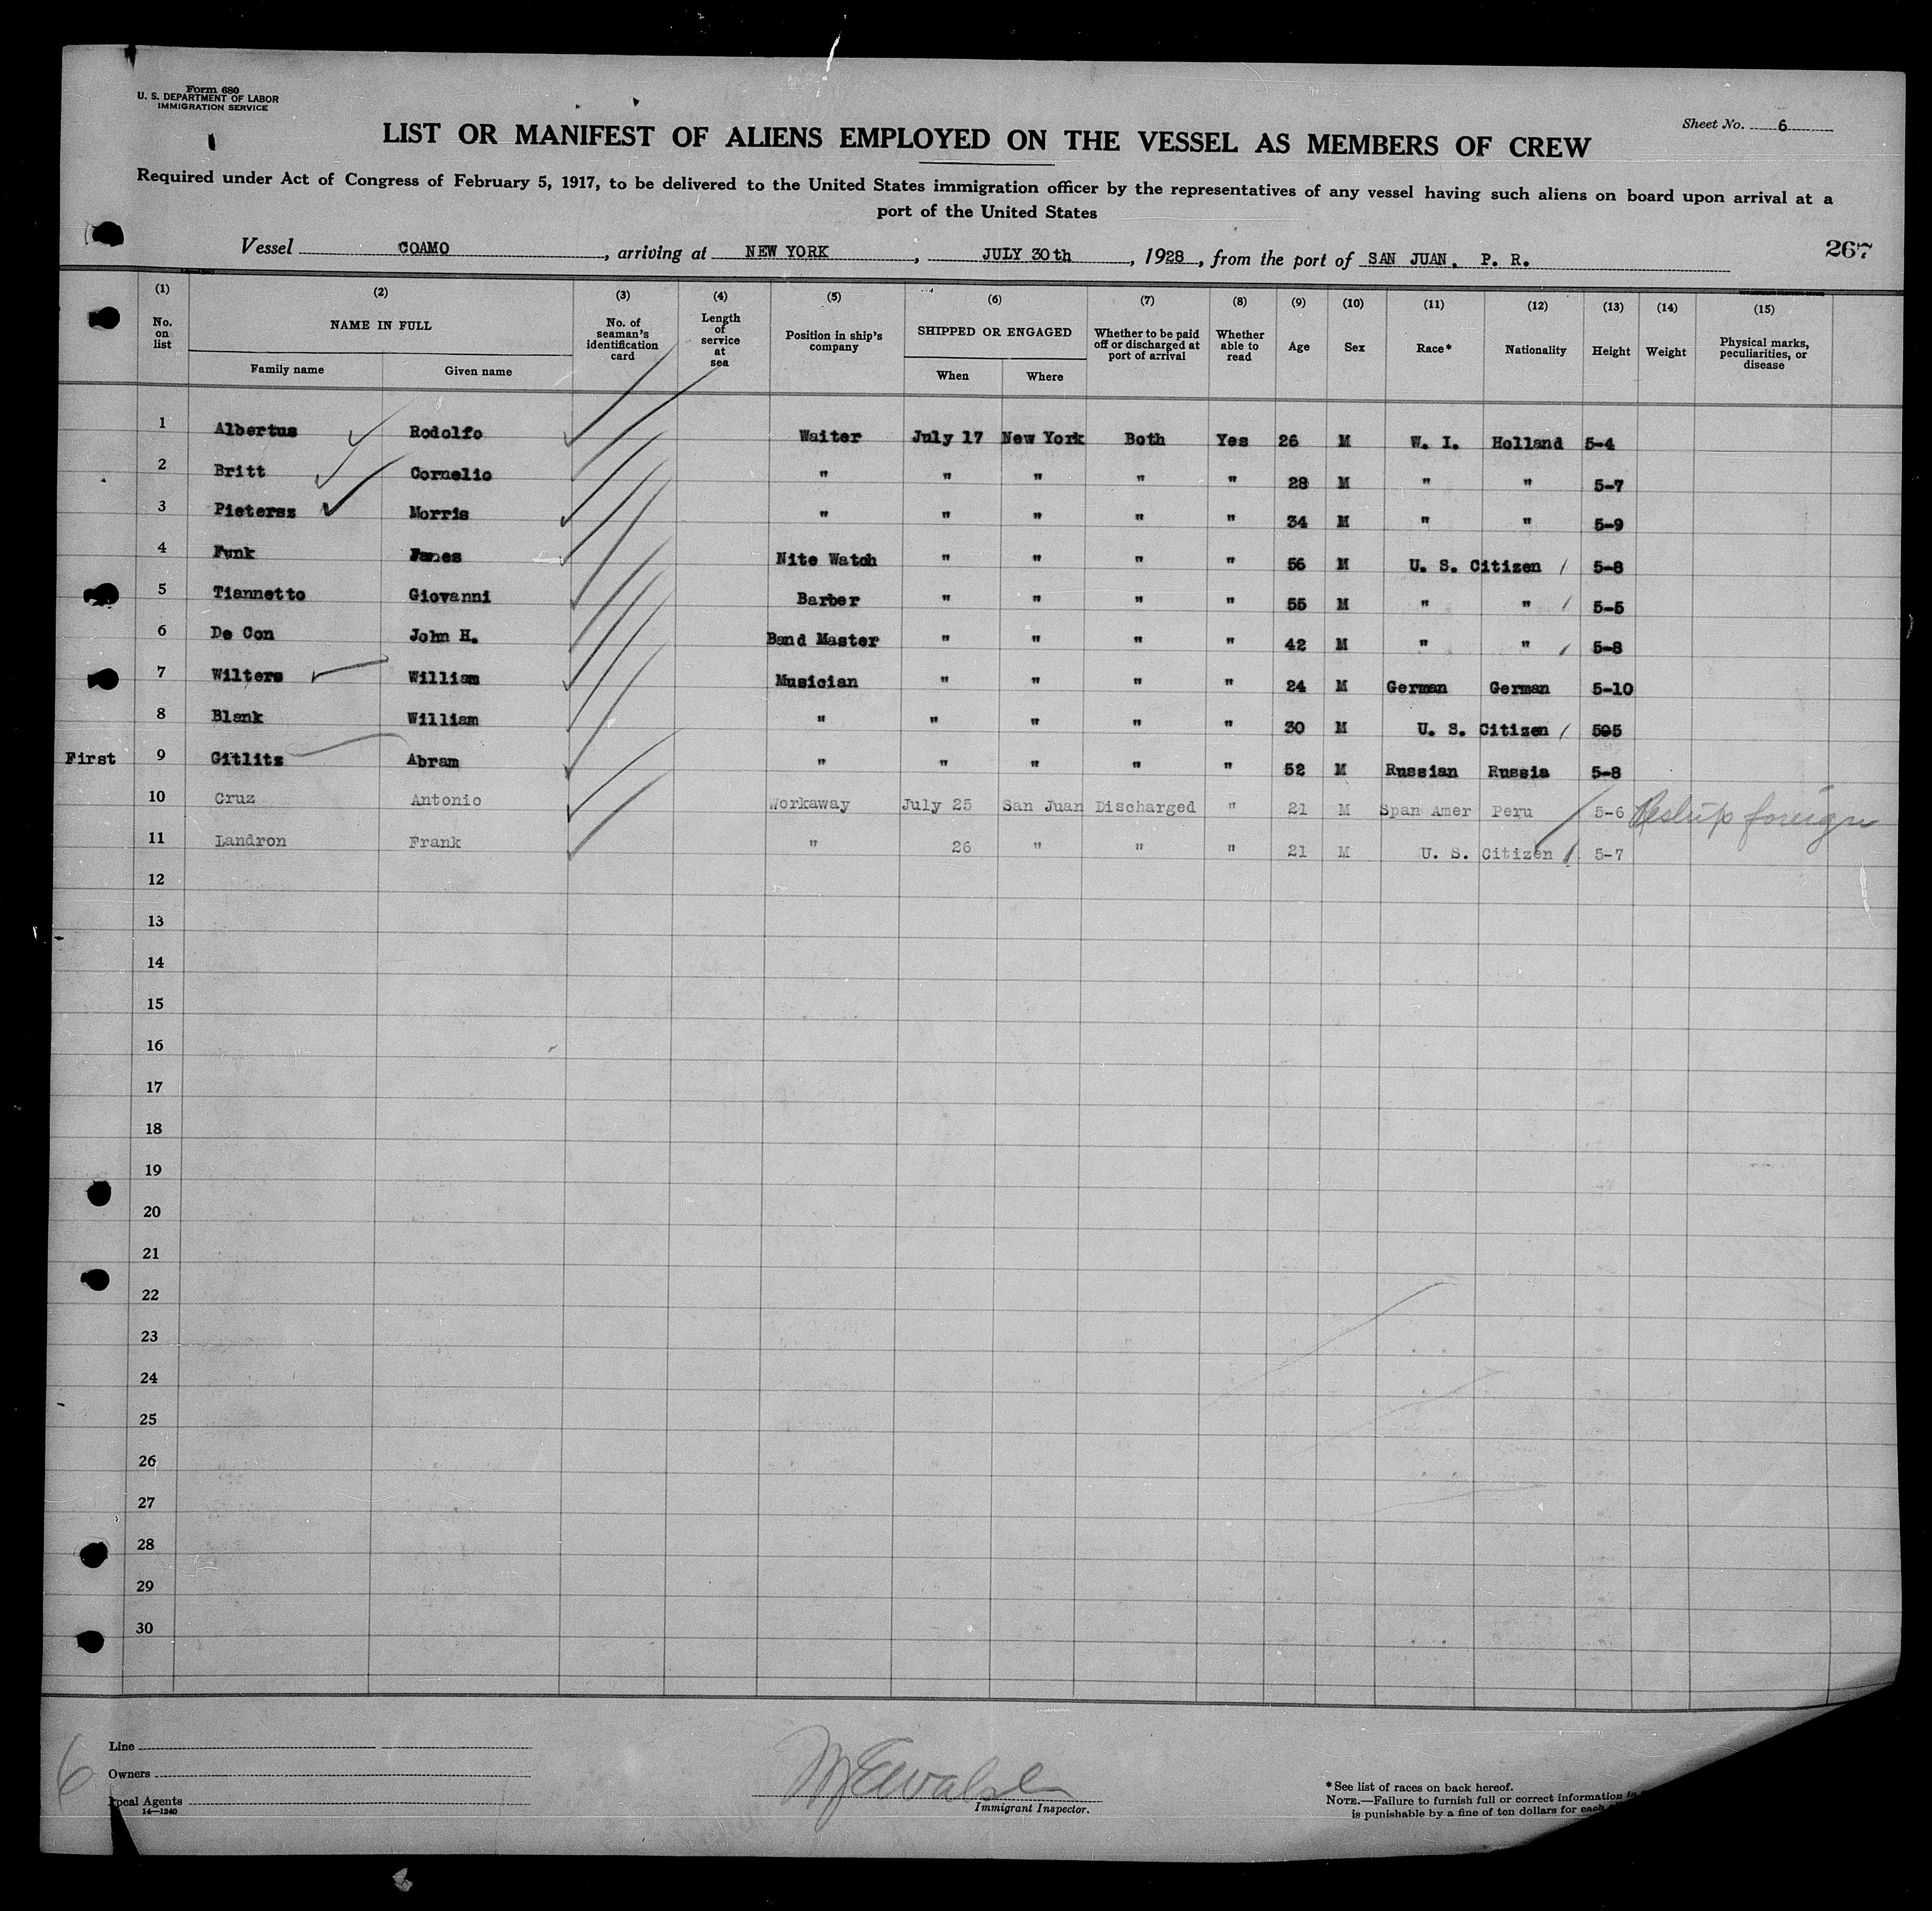 Form 680
U. S. DEPARTMENT OF LABOR
IMMIGRATION SERVICE
Sheet No. 6
LIST OR MANIFEST OF ALIENS EMPLOYED ON THE VESSEL AS MEMBERS OF CREW
Required under Act of Congress of February 5, 1917, to be delivered to the United States immigration officer by the representatives of any vessel having such aliens on board upon arrival at a
port of the United States
Vessel COAMO, arriving at NEW YORK, JULY 30th, 1928, from the port of SAN JUAN. P. R.
267
(1) (2) (3) (4) (5) (6) (7) (8) (9) (10) (11) (12) (13) (14) (15)
No. on list
NAME IN FULL
Family name
Given name
No. of seaman's identification card
Length of service at sea
Position in ship's company
SHIPPED OR ENGAGED
When
Where
Whether to be paid off or discharged at port of arrival
Whether able to read
Age
Sex
Race*
Nationality
Height
Weight
Physical marks, peculiarities, or disease
1 Albertus Rodolfo Waiter July 17 New York Both Yes 26 M W. I. Holland 5-4
2 Britt Cornelio " " " " " 28 M " " 5-7
3 Pietersz Morris " " " " " 34 M " " 5-9
4 Funk Nite Watch " " " " 56 M U. S. Citizen 5-8
5 Tiannetto Giovanni Barber " " " " 55 M " " 5-5
6 De Con John H. Band Master " " " " 42 M " " 5-8
7 Wilters William Musician " " " " 24 M German German 5-10
8 Blank William " " " " " 30 M U. S. Citizen 505
First 9 Gitlitz Abram " " " " " 52 M Russian Russia 5-8
10 Cruz Antonio Workaway July 25 San Juan Discharged " 21 M Span Amer Peru 5-6 Reship foreign
11 Landron Frank " 26 " " " 21 M U. S. Citizen 5-7
12
13
14
15
16
17
18
19
20
21
22
23
24
25
26
27
28
29
30
6
Line
Owners
Local Agents
14—1240
Immigrant Inspector.
*See list of races on back hereof.
NOTE.—Failure to furnish full or correct information
is punishable by a fine of ten dollars for each